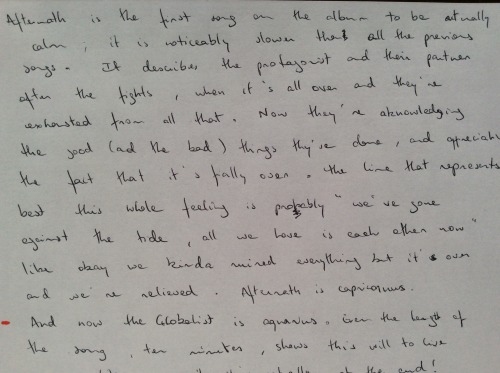 Aftermath is the first song on the album to be actually
calm, it is noticeably slower that all the previous
songs. It describes the protagonist and their partner
after the fights, when it's all over and they're
exhausted from all that. Now they're acknowledging
the good (and the bad) things they've done, and appreciate
the fact that it's finally over. the line that represents
best this whole feeling is probably "we've gone
against the tide, all we have is each other now"
like okay we kinda ruined everything but it's over
and we're relieved. Aftermath is capricornus.
- And now the Globalist is aquarius. Even the length of
the song, ten minutes, shows this will to live
at the end!